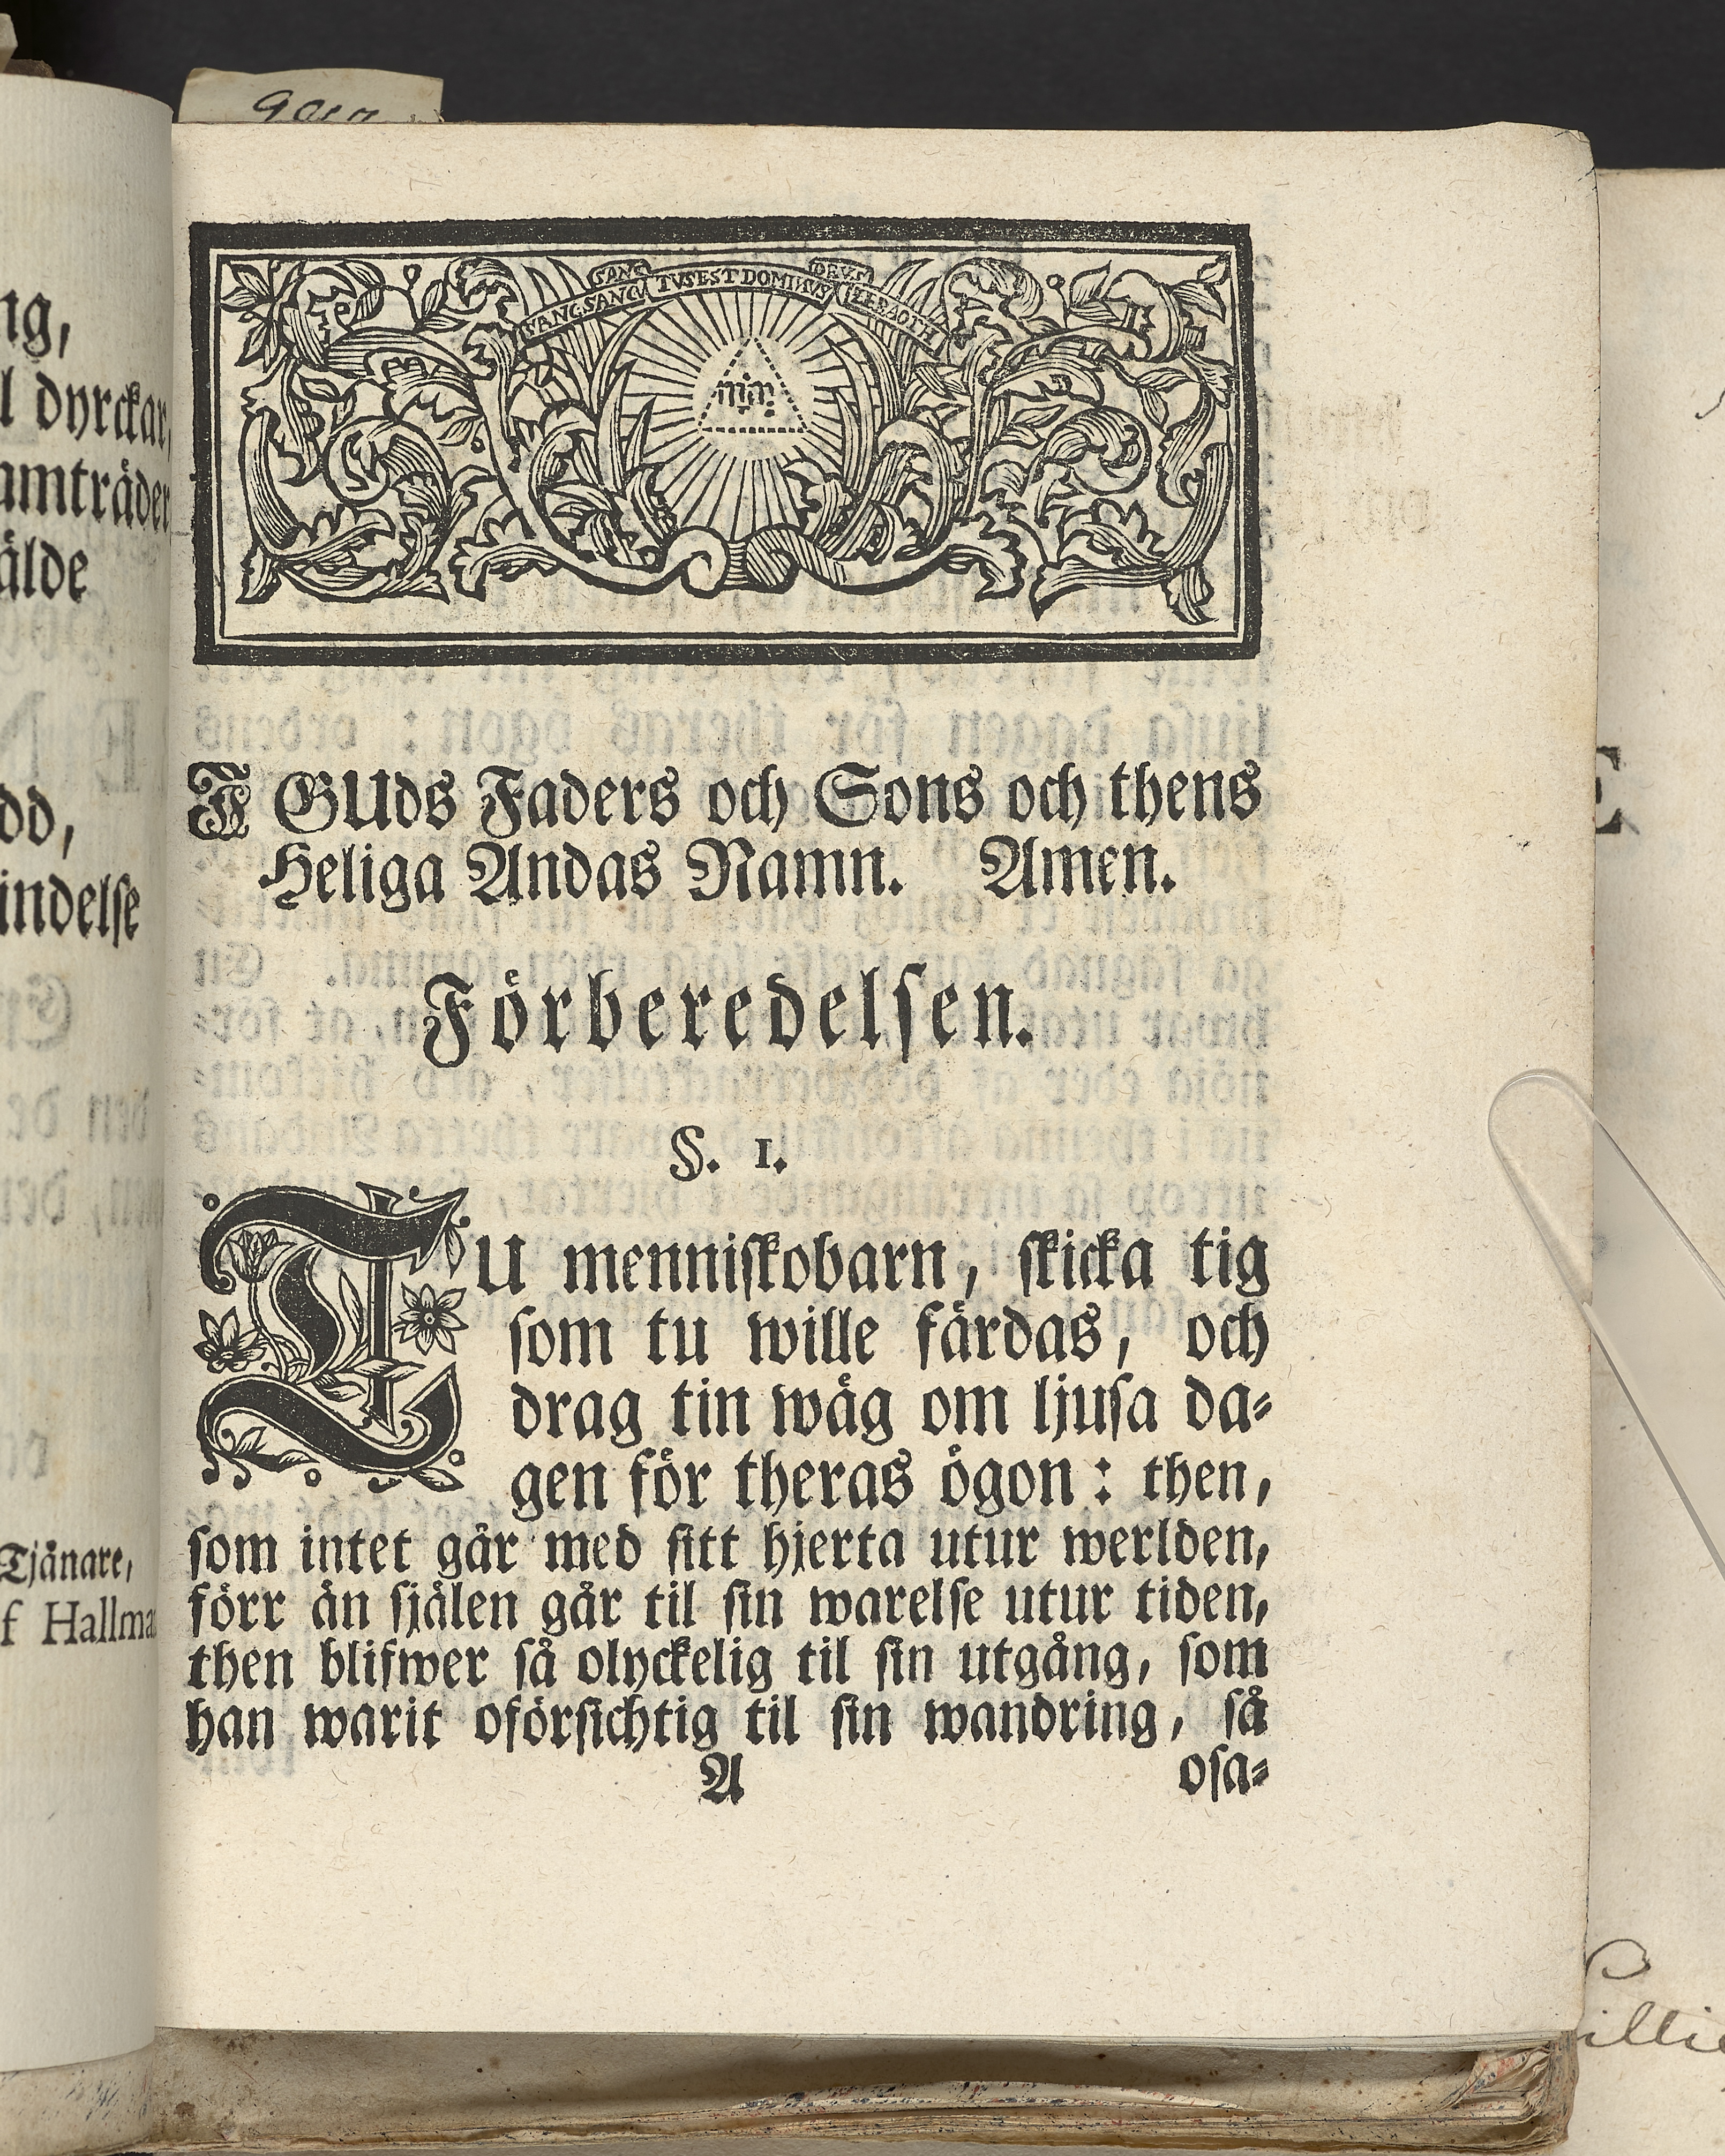 ng,
l dyrckar,
amträder
älde
dd,
indelse
Tjänare,
f Hallma
SANCT SANCTUS EST DOMINUS DEUS ZEBAOTH
I GUds Faders och Sons och thens
Heliga Andas Namn. Amen.
Förberedelsen.
§. 1.
TU menniſkobarn, ſkicka tig
ſom tu wille färdas, och
drag tin wäg om ljuſa da⸗
gen för theras ögon: then,
ſom intet går med ſitt hjerta utur werlden,
förr än ſjälen går til ſin warelſe utur tiden,
then blifwer ſå olyckelig til ſin utgång, ſom
han warit oförſichtig til ſin wandring, ſå
A oſa⸗
E
illie